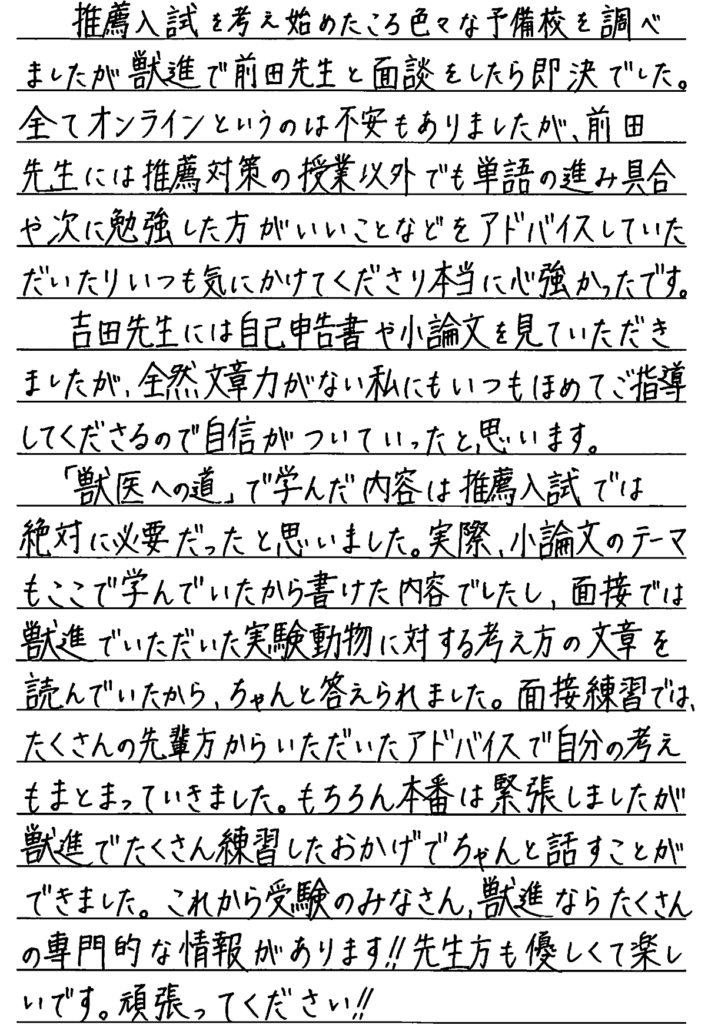 推薦入試を考え始めたころ色々な予備校を調べ
ましたが獣進で前田先生と面談をしたら即決でした。
全てオンラインというのは不安もありましたが、前田
先生には推薦対策の授業以外でも単語の進み具合
や次に勉強した方がいいことなどをアドバイスしていた
だいたりいつも気にかけてくださり本当に心強かったです。
吉田先生には自己申告書や小論文を見ていただき
ましたが、全然文章力がない私にもいつもほめてご指導
してくださるので自信がついていったと思います。
「獣医への道」で学んだ内容は推薦入試では
絶対に必要だったと思いました。実際、小論文のテーマ
もここで学んでいたから書けた内容でしたし、面接では
獣進でいただいた実験動物に対する考え方の文章を
読んでいたから、ちゃんと答えられました。面接練習では、
たくさんの先輩方からいただいたアドバイスで自分の考え
もまとまっていきました。もちろん本番は緊張しましたが
獣進でたくさん練習したおかげでちゃんと話すことが
できました。これから受験のみなさん、獣進ならたくさん
の専門的な情報があります!!先生方も優しくて楽し
いです。頑張ってください!!